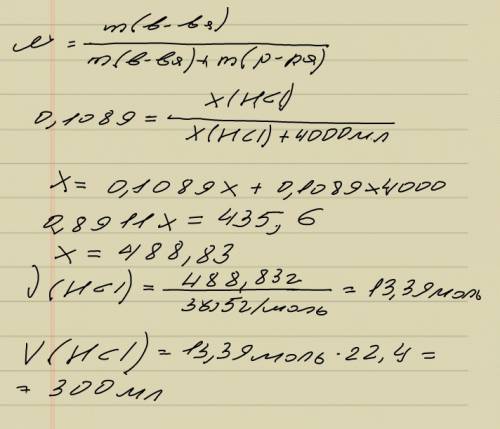 w = m(в-вя) / m(в-вя)+m(р-ря)
0,1089 = x(HCl) / x(HCl)+4000мл
x= 0,1089x + 0,1089×4000
0,8911x = 435,6
x = 488,83
ν(HCl) = 488,83г / 36,5г/моль = 13,39моль
V(HCl) = 13,39моль·22,4=
= 300мл